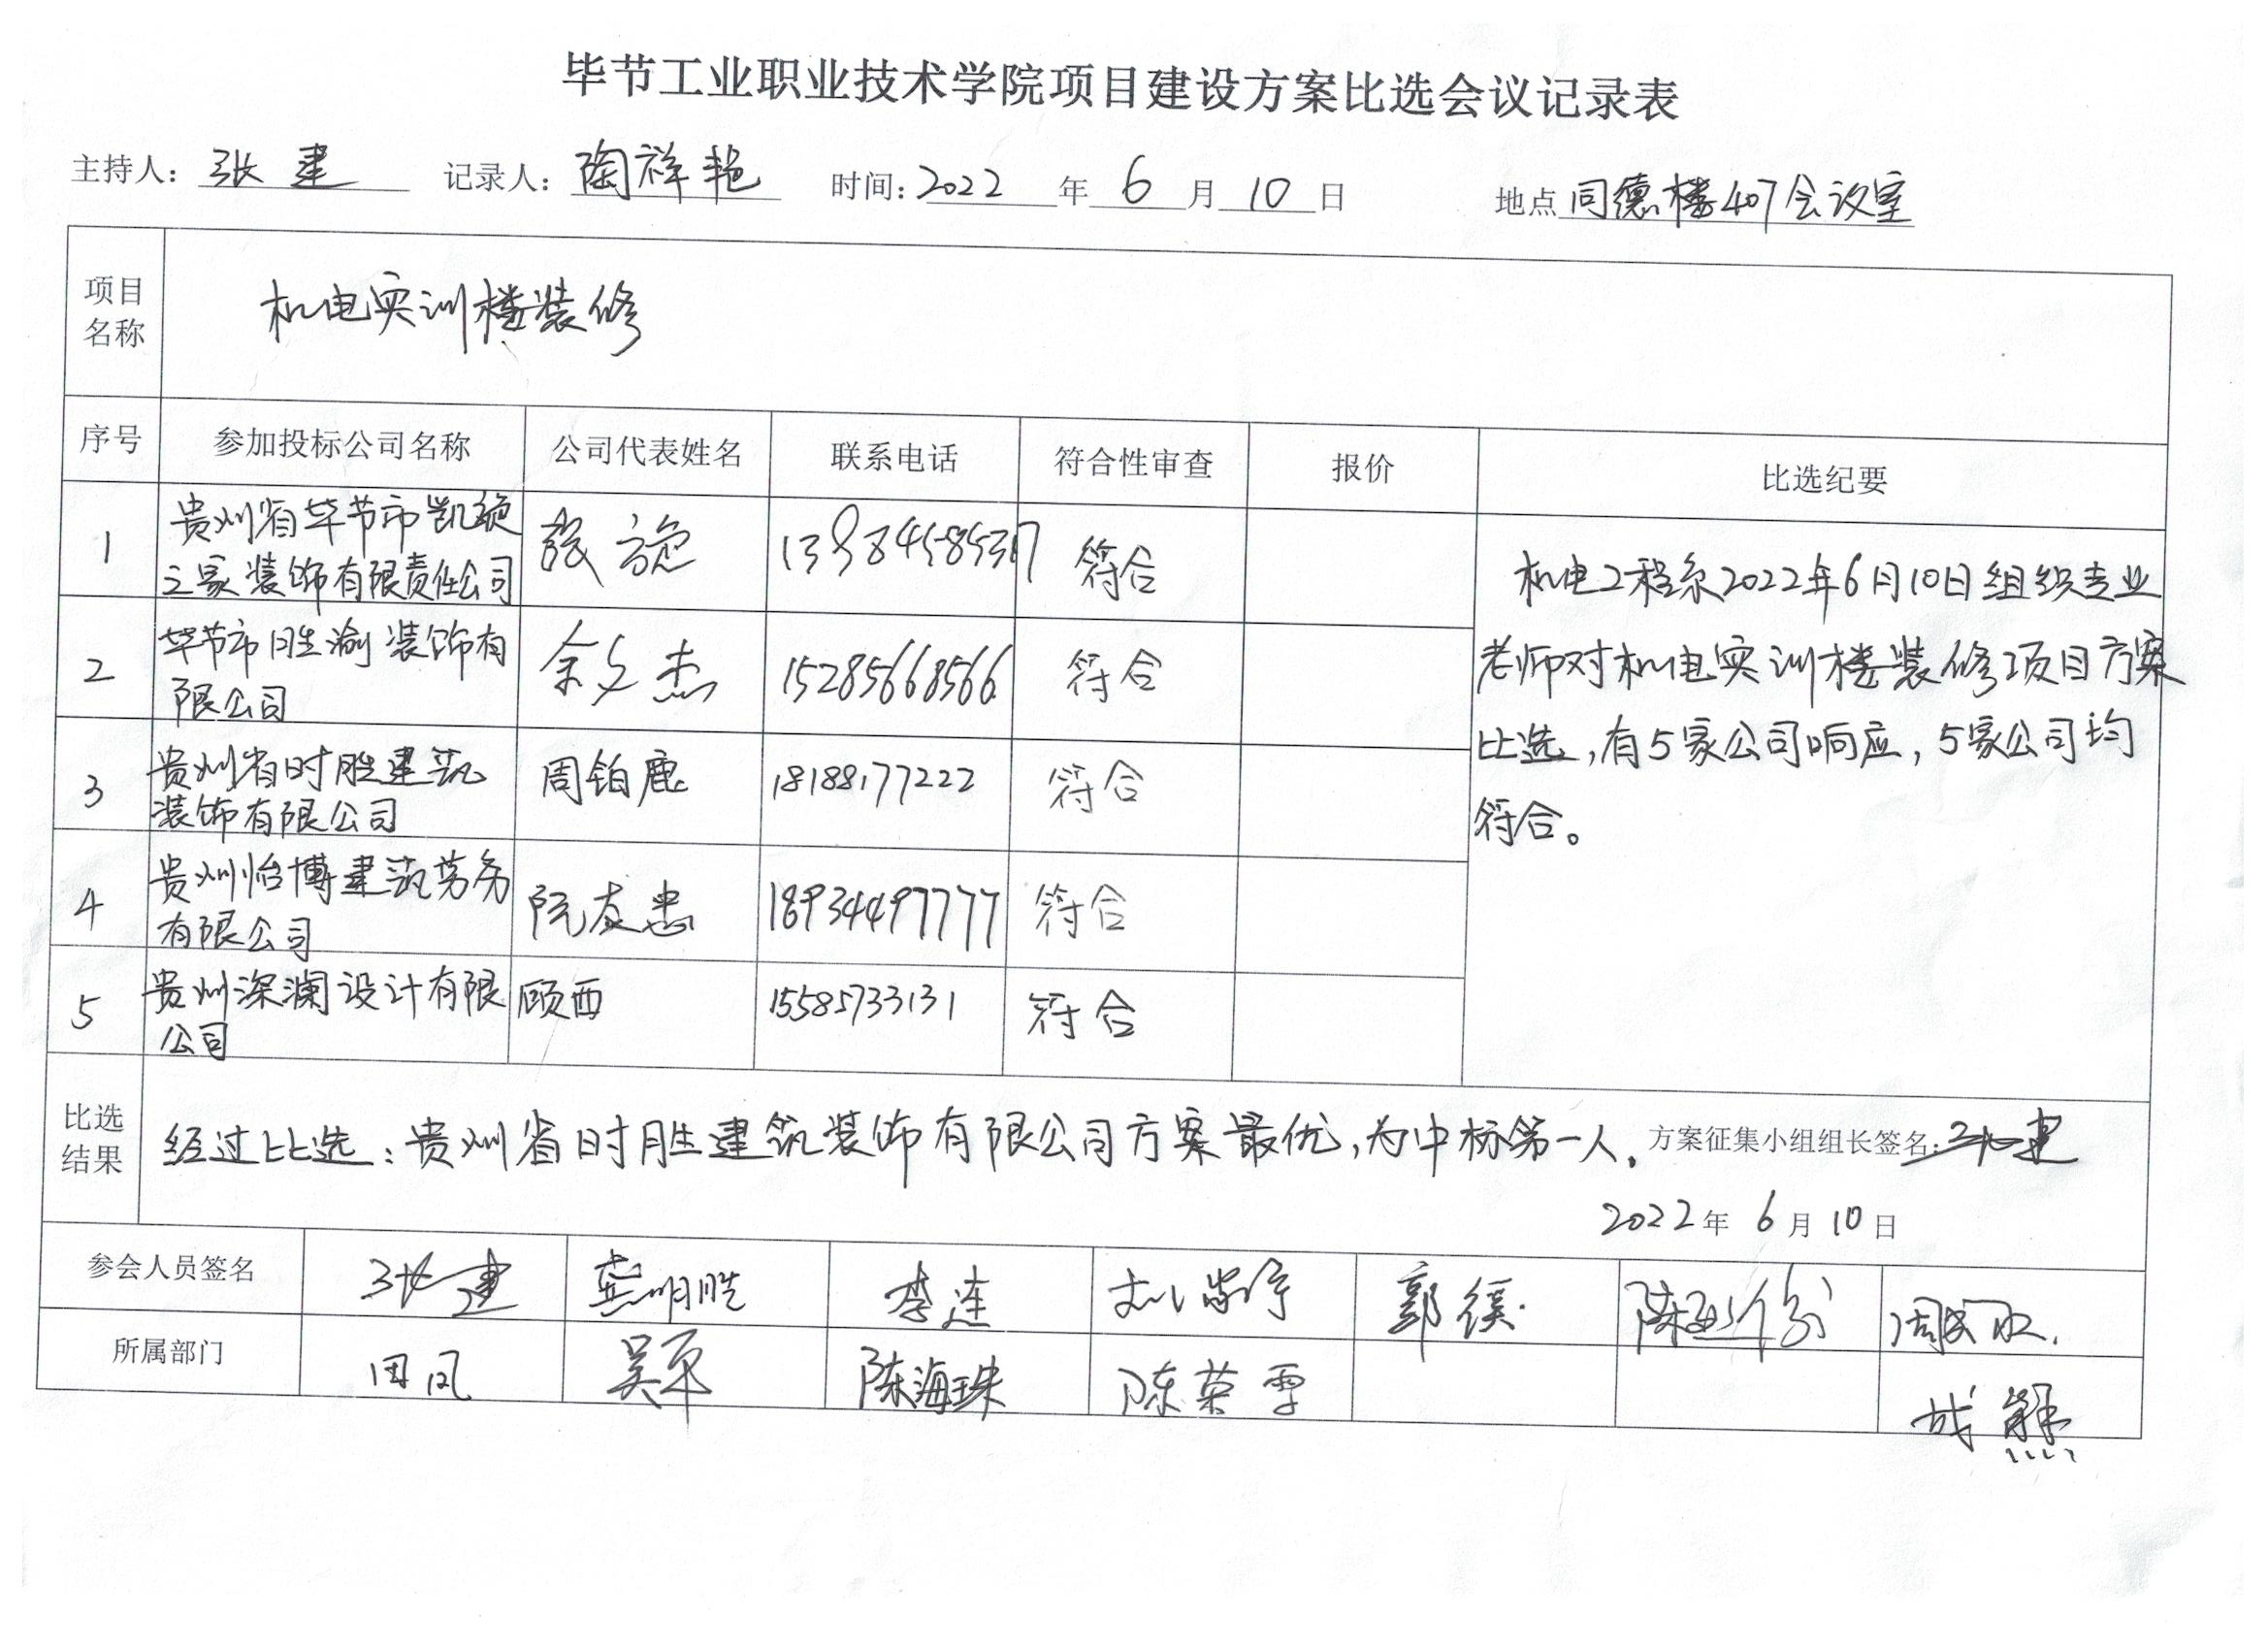 毕节工业职业技术学院项目建设方案比选会议记录表
主持人：张建 记录人：陶祥艳 时间：2022年6月10日 地点 同德楼407会议室
项目名称 机电实训楼装修
序号 参加投标公司名称 公司代表姓名 联系电话 符合性审查 报价 比选纪要
1 贵州省毕节市凯旋之家装饰有限责任公司 符合
2 毕节市胜渝装饰有限公司 余文杰 15285668566 符合
3 贵州省时胜建筑装饰有限公司 周铂鹿 18188177222 符合
4 贵州怡博建筑劳务有限公司 阮友忠 18934497777 符合
5 贵州深澜设计有限公司 顾西 15585733131 符合
机电工程系2022年6月10日组织专业
老师对机电实训楼装修项目方案
比选，有5家公司响应，5家公司均
符合。
比选结果 经过比选：贵州省时胜建筑装饰有限公司方案最优，为中标第一人。方案征集小组组长签名：张建
2022年6月10日
参会人员签名 张建 龚明胜 李连 郭徯
所属部门 田风 吴军 陈海珠 陈荣雪